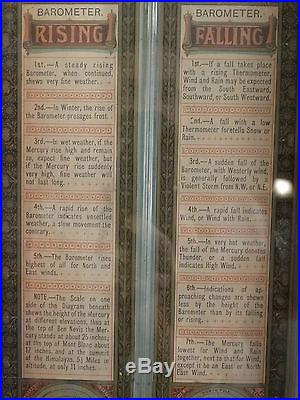 BAROMETER.
RISING
1st.—A steady rising
Barometer, when continued,
shews very fine weather.
2nd.—In Winter, the rise of
the Barometer presages frost.
3rd.—In wet weather, if the
Mercury rise high and remain
so, expect fine weather, but
if the Mercury rises suddenly
very high, fine weather
will not last long.
4th.—A rapid rise of the
Barometer indicates unsettled
weather, a slow movement the
contrary.
5th.—The Barometer rises
highest of all for North and
East winds.
NOTE.—The Scale on one
side of the Diagram beneath
shews the height of the Mercury
at different elevations; thus, at
top of Ben Nevis the Mercury
stands at about 25 inches; at
the top of Mont Blanc about
17 inches, and at the summit
of the Himalayas, 5½ Miles in
altitude, at only 11 inches.
BAROMETER.
FALLING
1st.—If a fall takes place
with a rising Thermometer,
Wind and Rain may be expected
from the South Eastward,
Southward, or South Westward.
2nd.—A fall with a low
Thermometer foretells Snow or
Rain.
3rd.—A sudden fall of the
Barometer, with Westerly wind,
is generally followed by a
Violent Storm from N.W. or N.E.
4th.—A rapid fall indicates
Wind, or Wind with Rain.
5th.—In very hot weather,
the fall of the Mercury denotes
Thunder, or a sudden fall
indicates High Wind.
6th.—Indications of ap-
proaching changes are shewn
less by the height of the
Barometer than by its falling
or rising.
7th.—The Mercury falls
lowest for Wind and Rain
together, next to that for Wind,
except it be an East or North
East Wind.